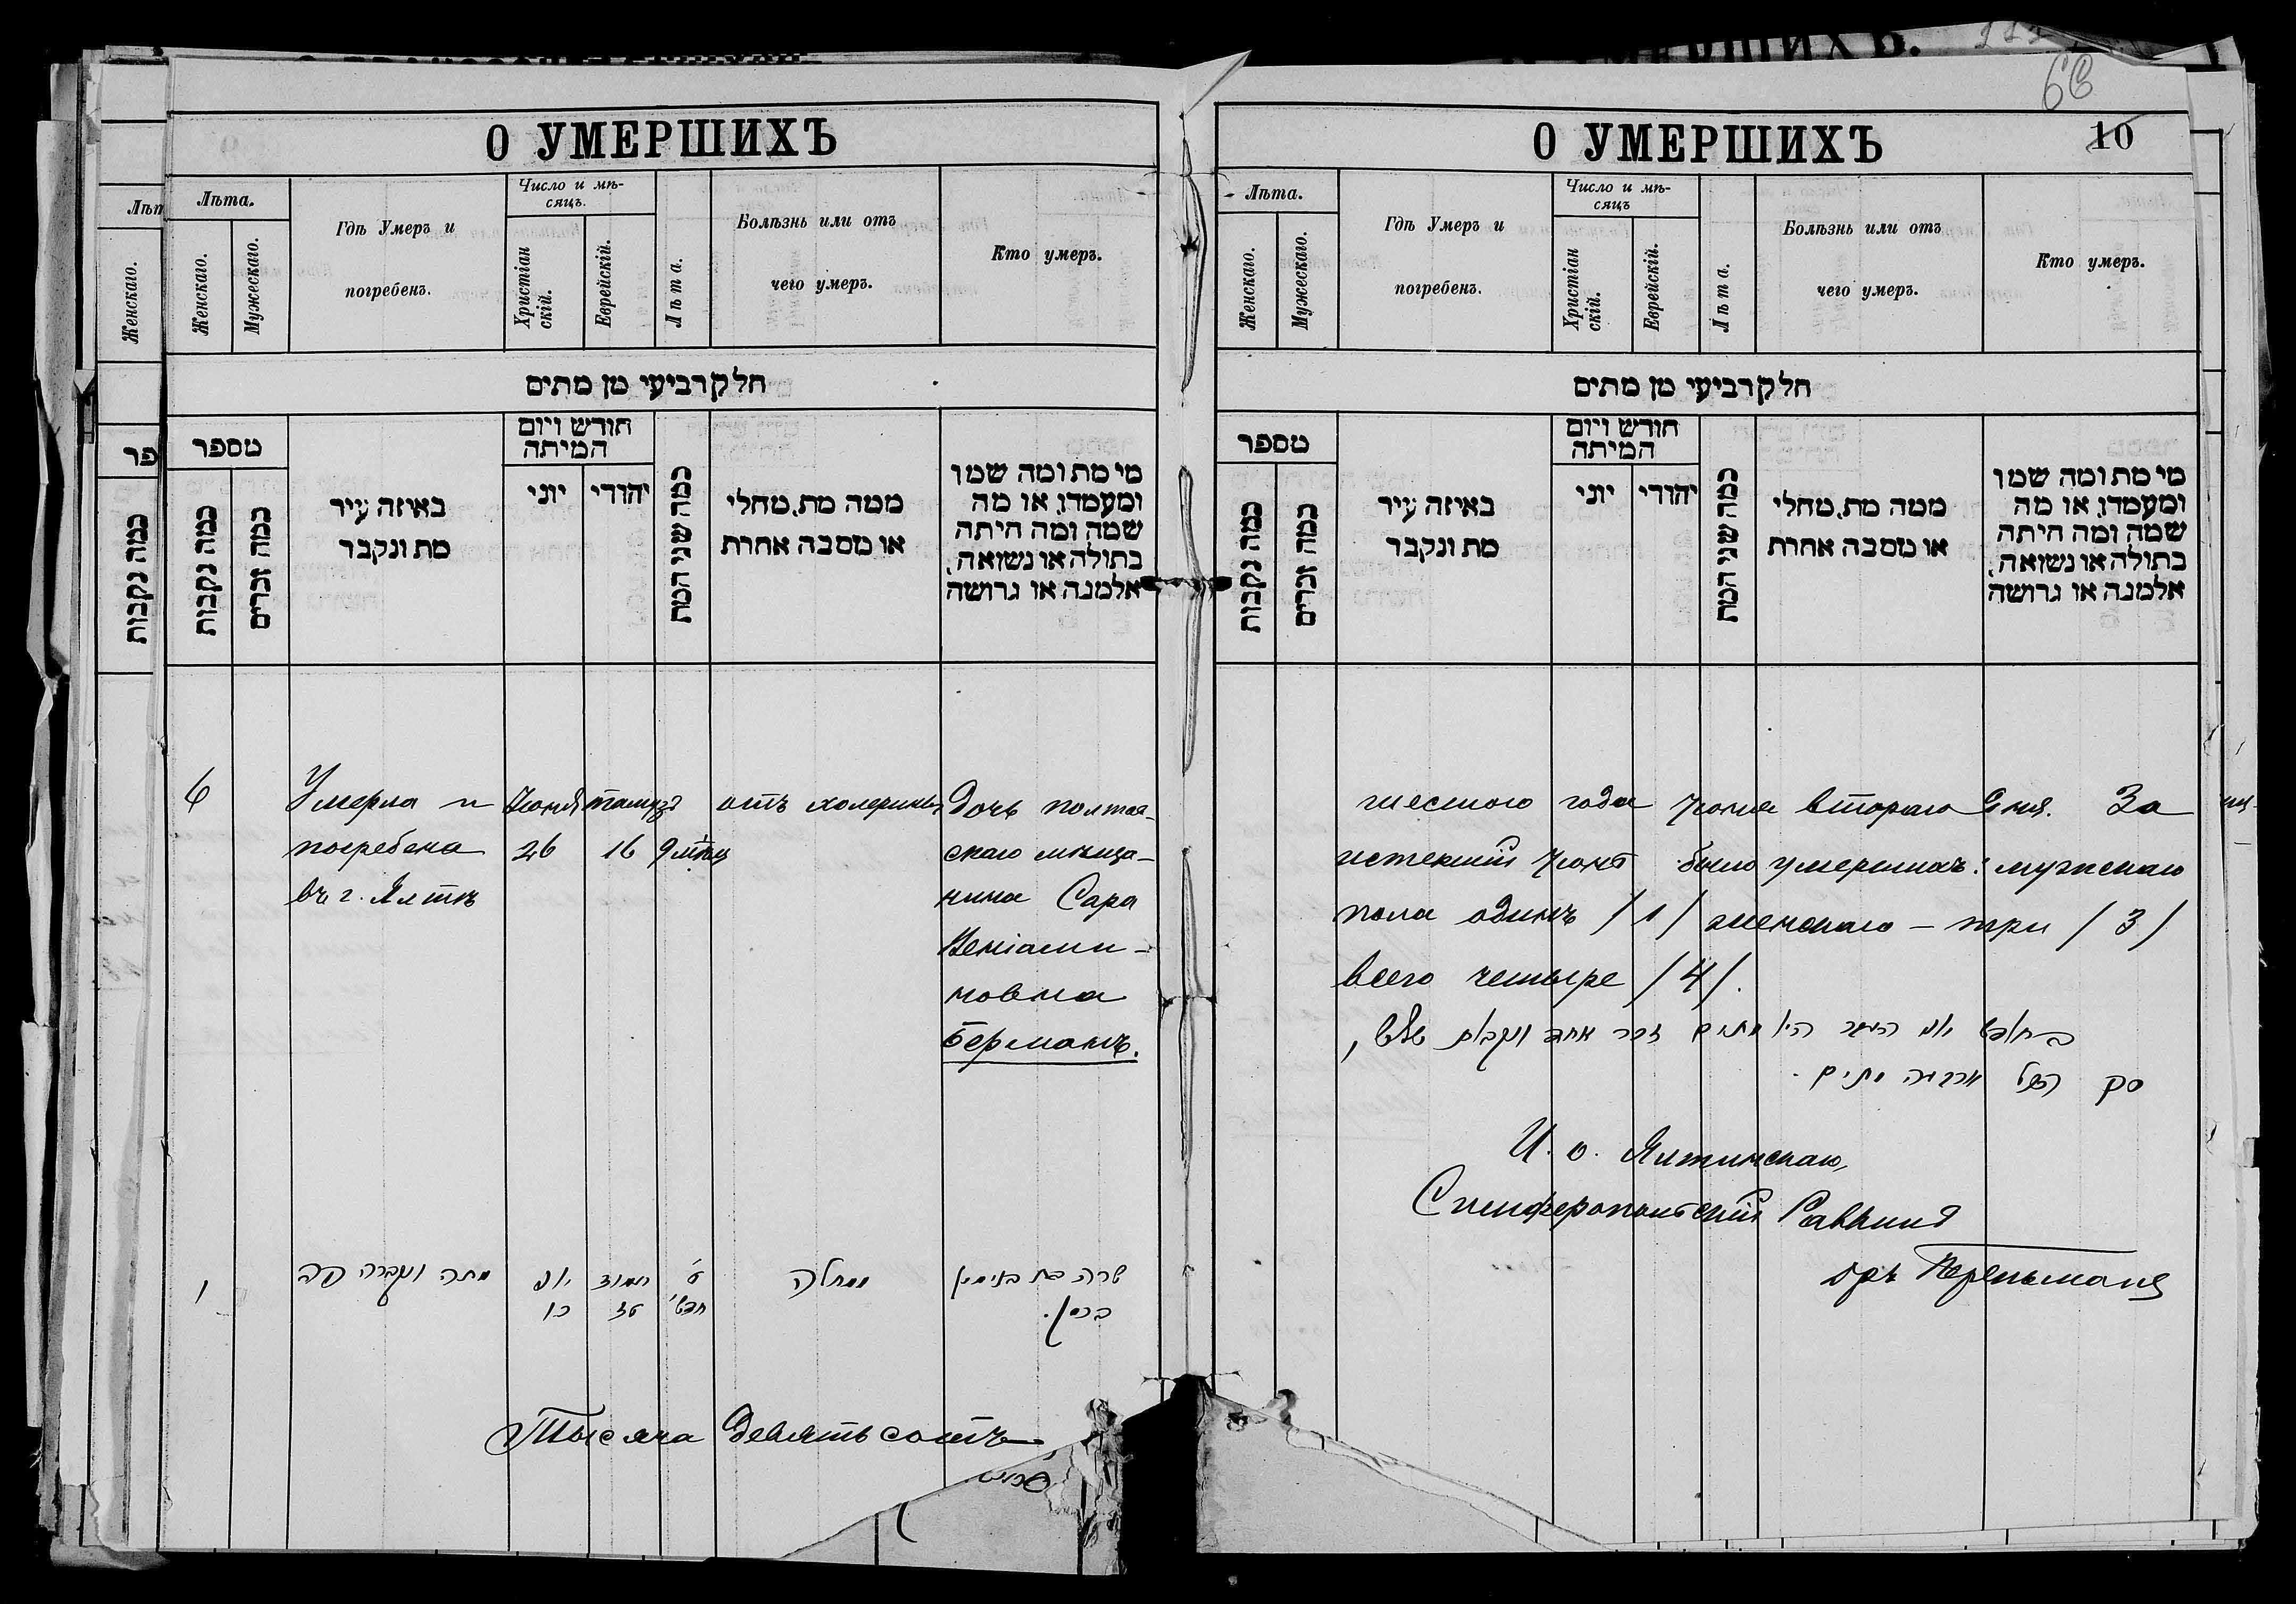 О УМЕРШИХЪ
Лѣта.
Женскаго.
Мужескаго.
Гдѣ Умеръ и
погребенъ.
Число и мѣ-
сяцъ.
Христіан
скій.
Еврейскій.
Лѣта.
Болѣзнь или отъ
чего умеръ.
Кто умеръ.
חלק רביעי מן מתים
מספר
כמה נקבות
כמה זכרים
באיזה עיר
מת ונקבר
חודש ויום
המיתה
יוני
יהודי
כמה שני המת
ממה מת, מחלי
או מסבה אחרת
מי מת ומה שמו
ומעמדו, או מה
שמה ומה היתה
בתולה או נשואה,
אלמנה או גרושה
6 Умерла и Іюня тамузъ отъ холерины дочь полтав-
погребена 26 16 9 мѣсц скаго мѣща-
въ г. Ялтѣ нина Сара
Веніами-
новна
Берманъ.
1 מתה ונקברה פה יוני תמוז ט׳ ומחלה שרה בת בנימין
כו טז חדשי׳ ברמן.
Тысяча девятьсотъ
О УМЕРШИХЪ
10
68
Лѣта.
Женскаго.
Мужескаго.
Гдѣ Умеръ и
погребенъ.
Число и мѣ-
сяцъ
Христіан
скій.
Еврейскій.
Лѣта.
Болѣзнь или отъ
чего умеръ.
Кто умеръ.
חלק רביעי מן מתים
מספר
כמה נקבות
כמה זכרים
באיזה עיר
מת ונקבר
חודש ויום
המיתה
יוני
יהודי
כמה שני המת
ממה מת, מחלי
או מסבה אחרת
מי מת ומה שמו
ומעמדו, או מה
שמה ומה היתה
בתולה או נשואה,
אלמנה או גרושה
шестого года Іюня втораго дня. За
истекшій Іюнь было умершихъ: мужскаго
пола одинъ /1/ женскаго - три /3/
всего четыре /4/.
בחודש יוני העבר היו מתים זכר אחד ונקבות שלש,
סך הכל ארבעה מתים.
И. о. Ялтинскаго,
Симферопольскій Раввинъ